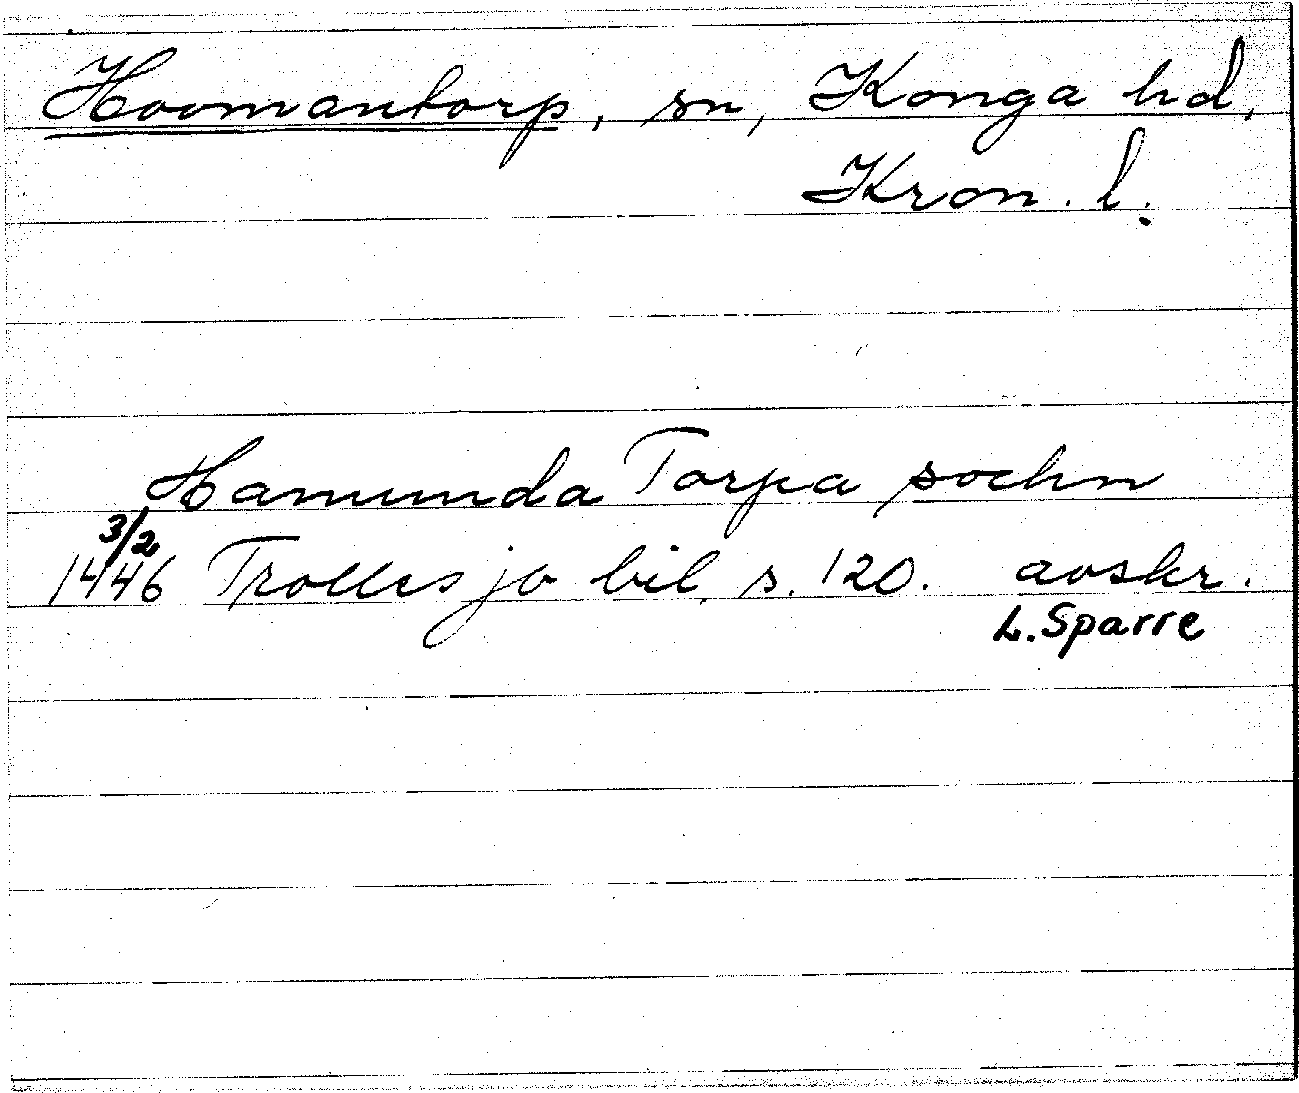 Hovmantorp, sn, Konga hd,
Kron. l.
Hamunda Torpa sochn
3/2
1446 Trollesjö bil. s. 120. avskr.
L. Sparre